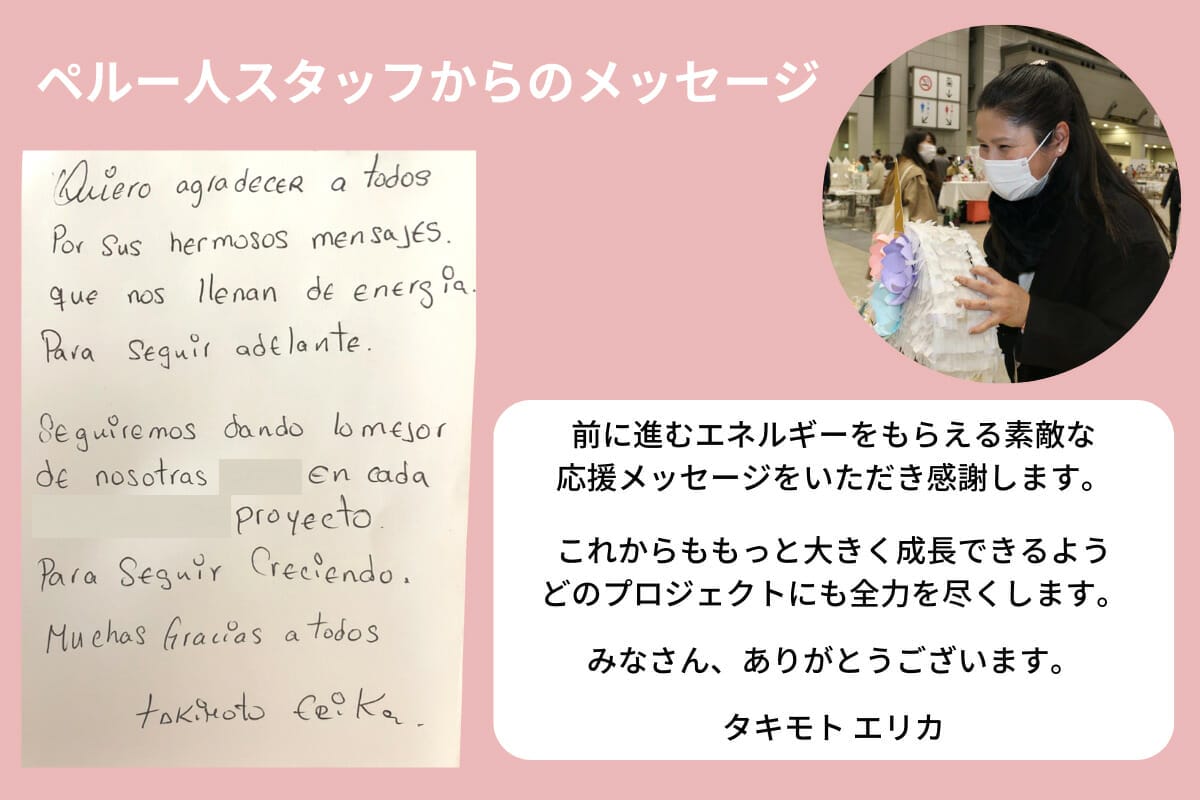 ペルー人スタッフからのメッセージ
Quiero agradecer a todos
Por sus hermosos mensajes.
que nos llenan de energía.
Para seguir adelante.
Seguiremos dando lo mejor
de nosotras En cada
proyecto.
Para seguir Creciendo.
Muchas Gracias a todos
takimoto Erika.
前に進むエネルギーをもらえる素敵な
応援メッセージをいただき感謝します。
これからももっと大きく成長できるよう
どのプロジェクトにも全力を尽くします。
みなさん、ありがとうございます。
タキモト エリカ